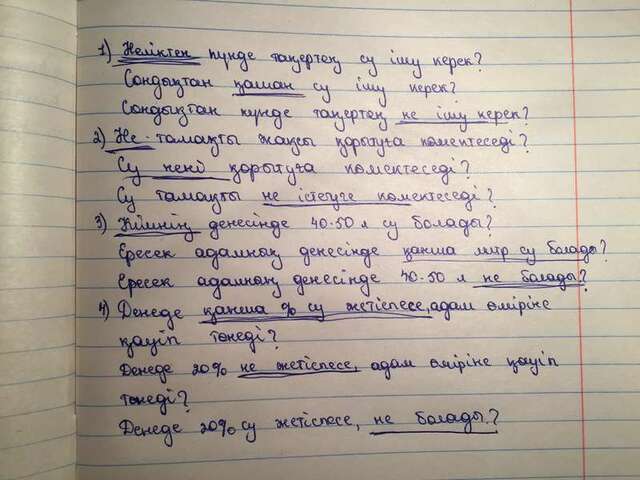 1) Неліктен күнде таңертең су ішу керек?
Сондықтан қашан су ішу керек?
Сондықтан күнде таңертең не ішу керек?
2) Не тамақты жақсы қорытуға көмектеседі?
Су нені қорытуға көмектеседі?
Су тамақты не істеуге көмектеседі?
3) Кімнің денесінде 40-50 л су болады?
Ересек адамның денесінде қанша литр су болады?
Ересек адамның денесінде 40-50 л не болады?
4) Денеде қанша % су жетіспесе, адам өміріне
қауіп төнеді?
Денеде 20% не жетіспесе, адам өміріне қауіп
төнеді?
Денеде 20% су жетіспесе, не болады?